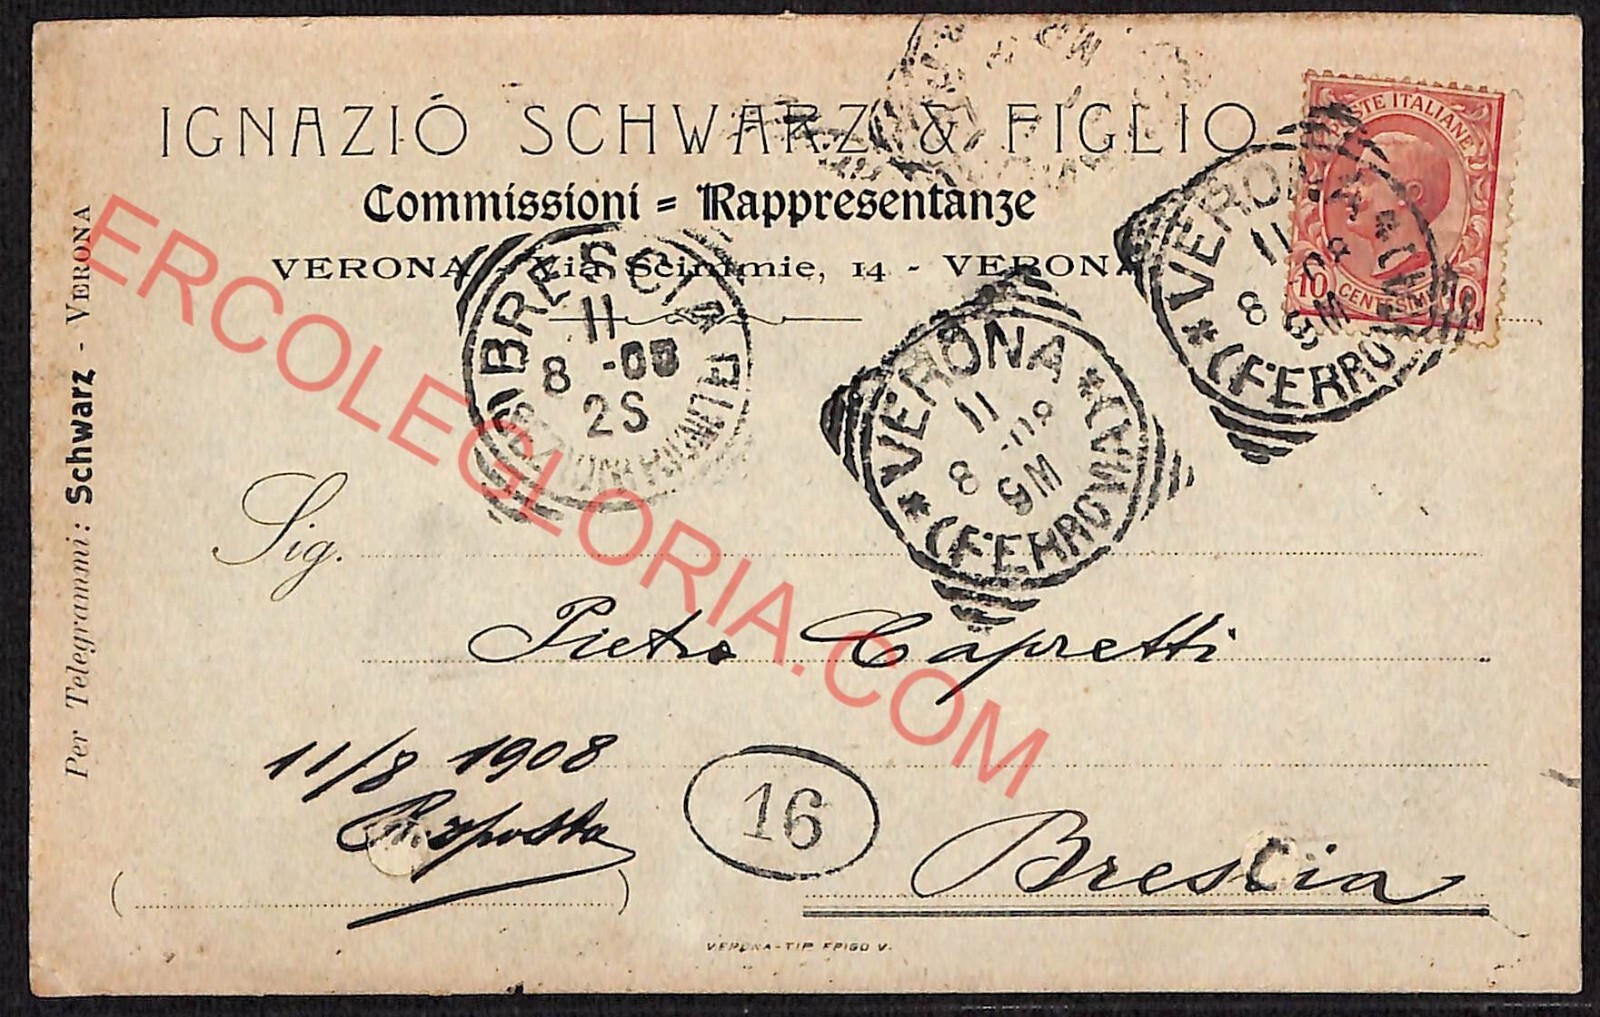 IGNAZIO SCHWARZ & FIGLIO
Commissioni = Rappresentanze
VERONA - Via Scimmie, 14 - VERONA
POSTE ITALIANE
10 CENTESIMI 10
VERONA
11
8 -08
9M
* (FERROVIA) *
VERONA
11
8 -08
9M
* (FERROVIA) *
BRESCIA
11
8 -08
2S
Per Telegrammi: Schwarz - VERONA
Sig.
Pietro Capretti
11/8 1908
Risposta
16
Brescia
( )
VERONA-TIP. FRIGO V.
ERCOLEGLORIA.COM